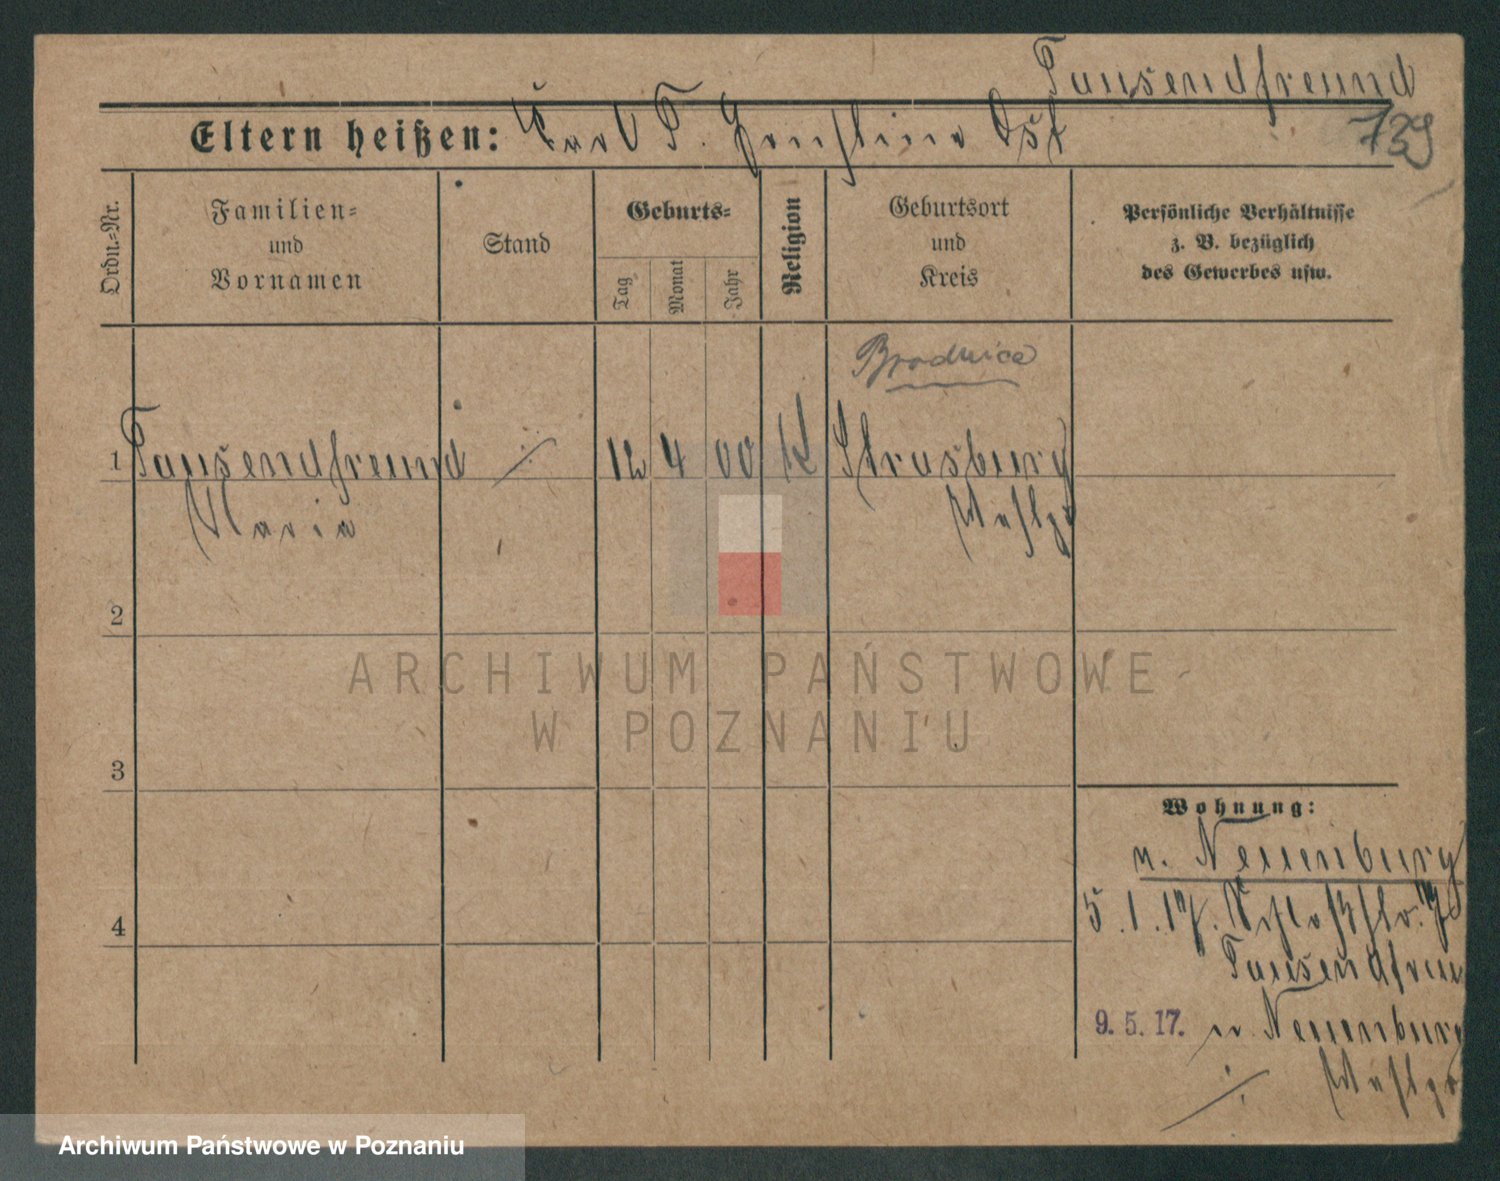 Tausendfreund
Eltern heißen: Karl T.
739
Ordn.-Nr.
Familien-
und
Vornamen
Stand
Geburts-
Tag
Monat
Jahr
Religion
Geburtsort
und
Kreis
Persönliche Verhältnisse
z. B. bezüglich
des Gewerbes usw.
Brodnica
1 Tausendfreund ./. 12 4 00 K Strasburg
Maria Westpr
2
3
4
Wohnung:
n. Neuenburg
5.1.17. Schloßstr.
Tausendfreu
9. 5. 17. n. Neuenburg
./. Westpr
ARCHIWUM PAŃSTWOWE
W POZNANIU
Archiwum Państwowe w Poznaniu